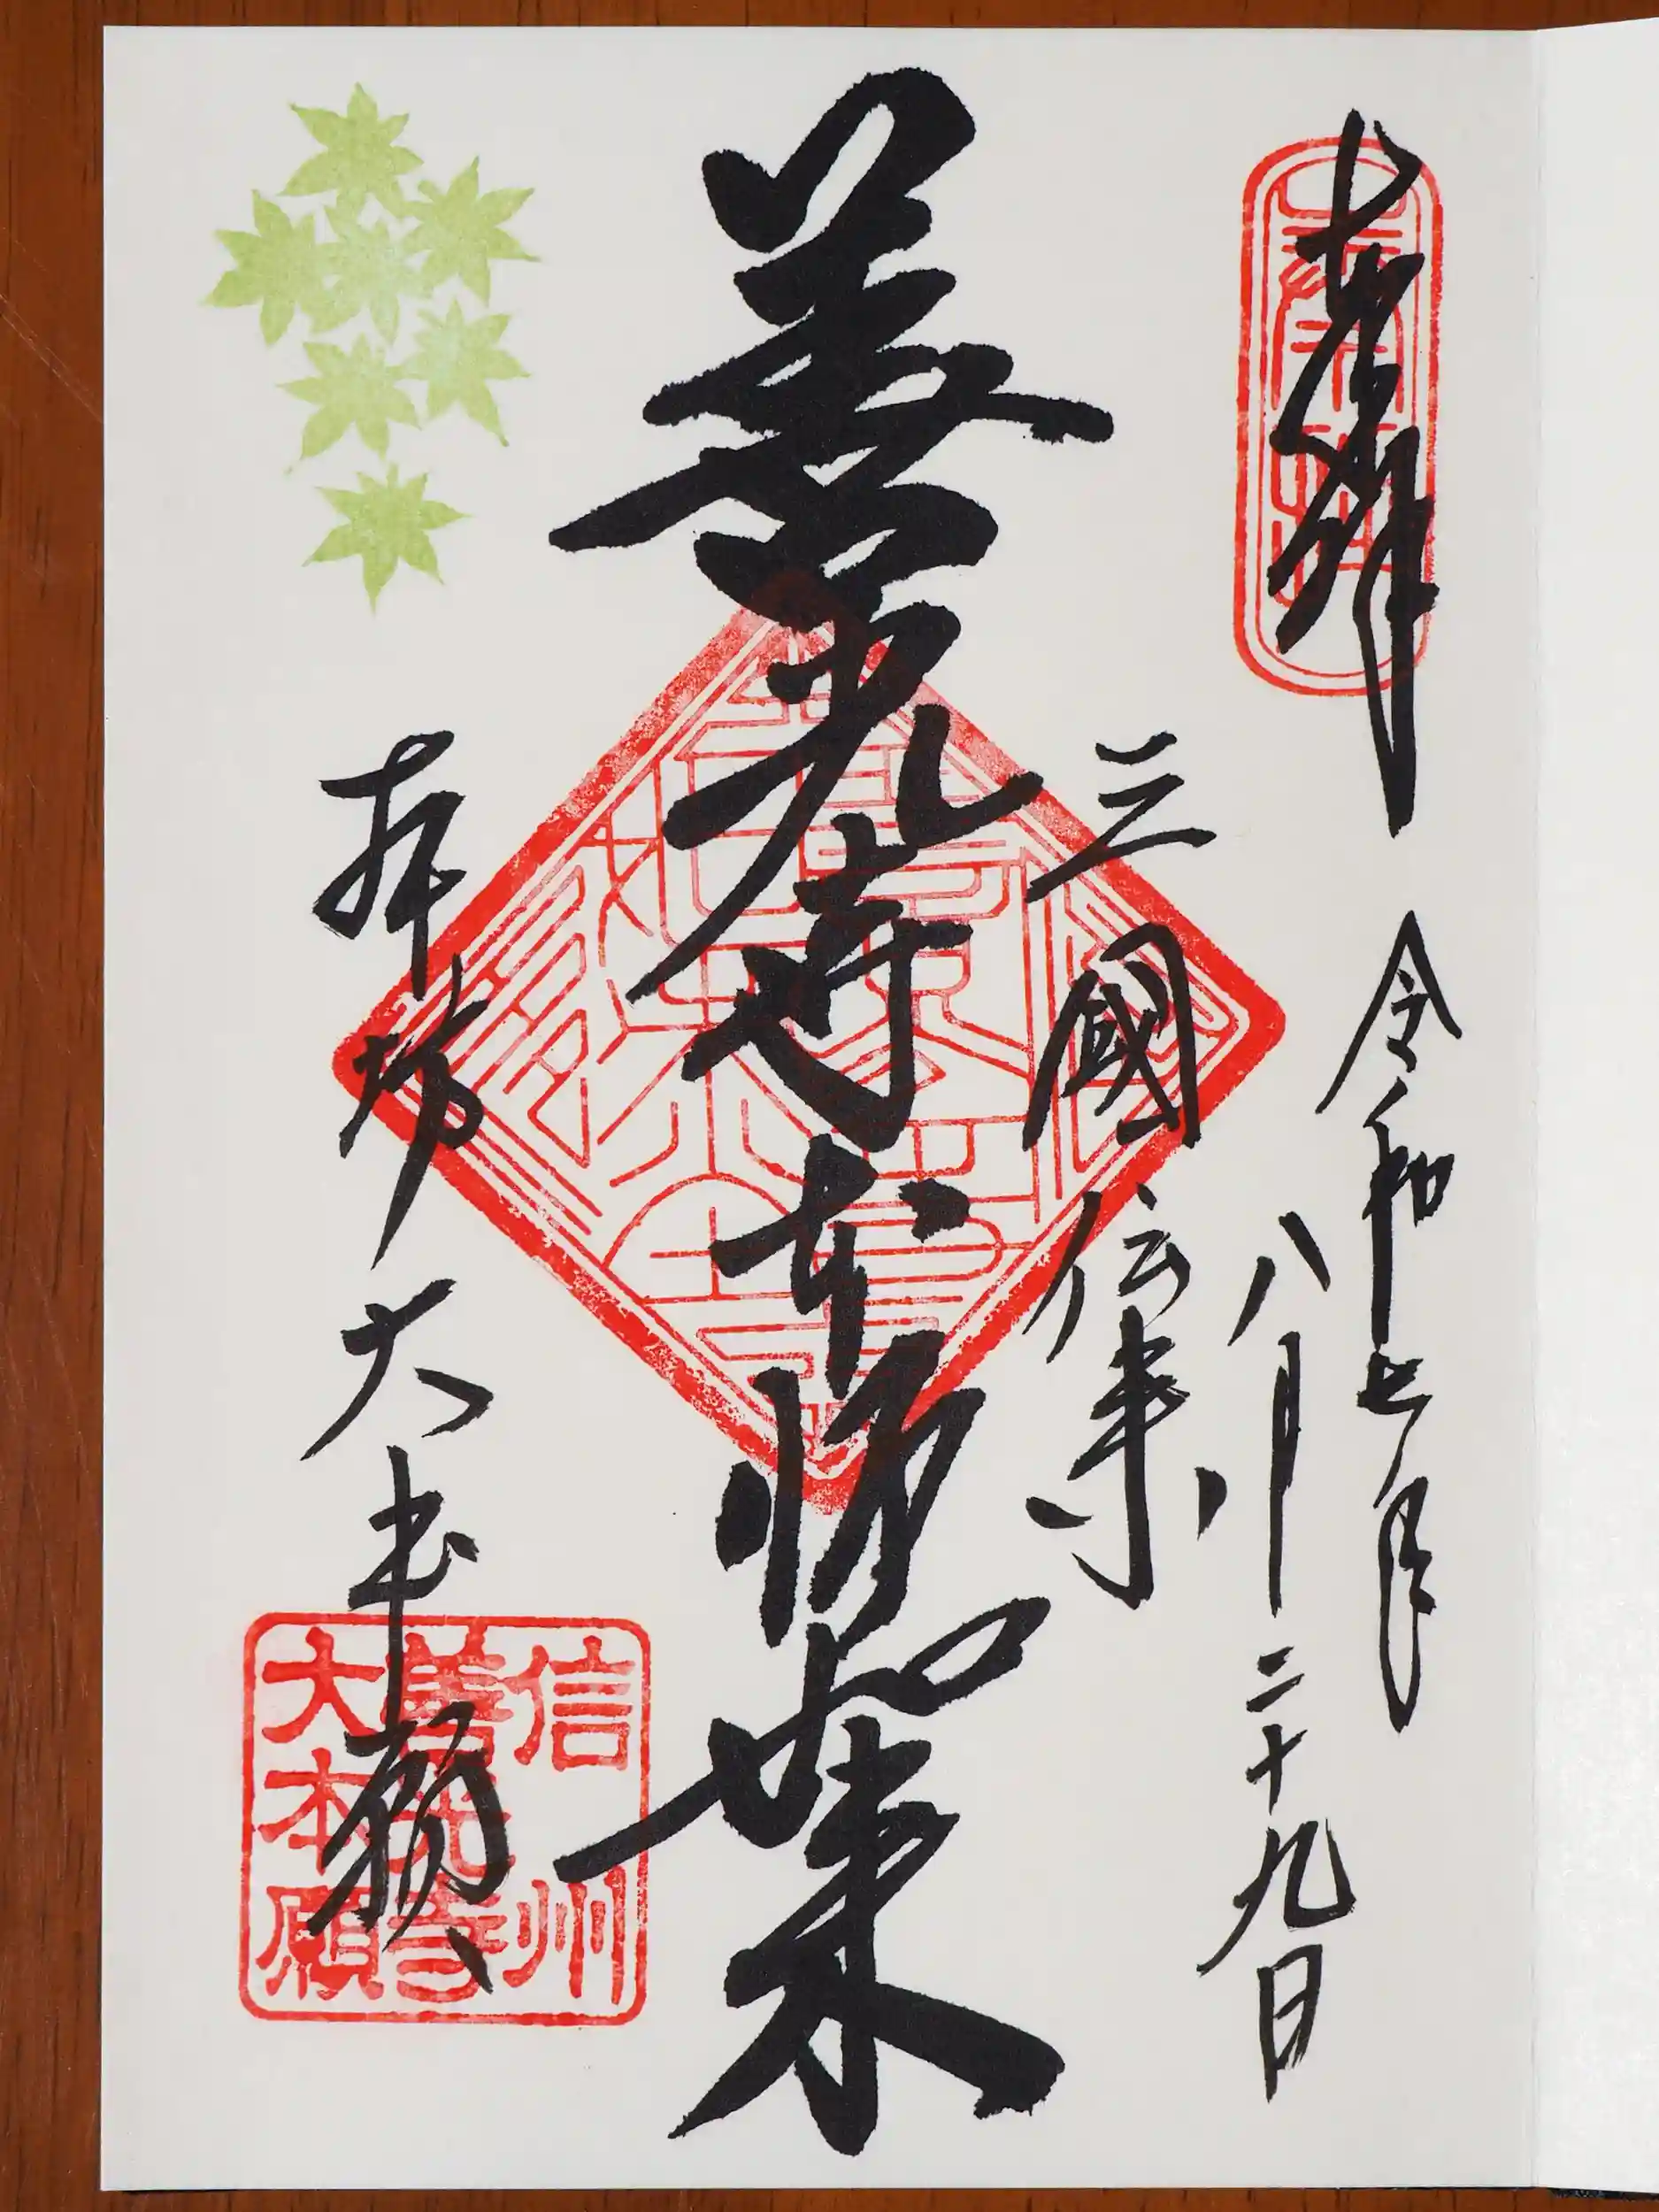 奉拝
令和七年
八月二十九日
三國伝来
善光寺本師如来
本坊大本願
信州
善光寺
大本願